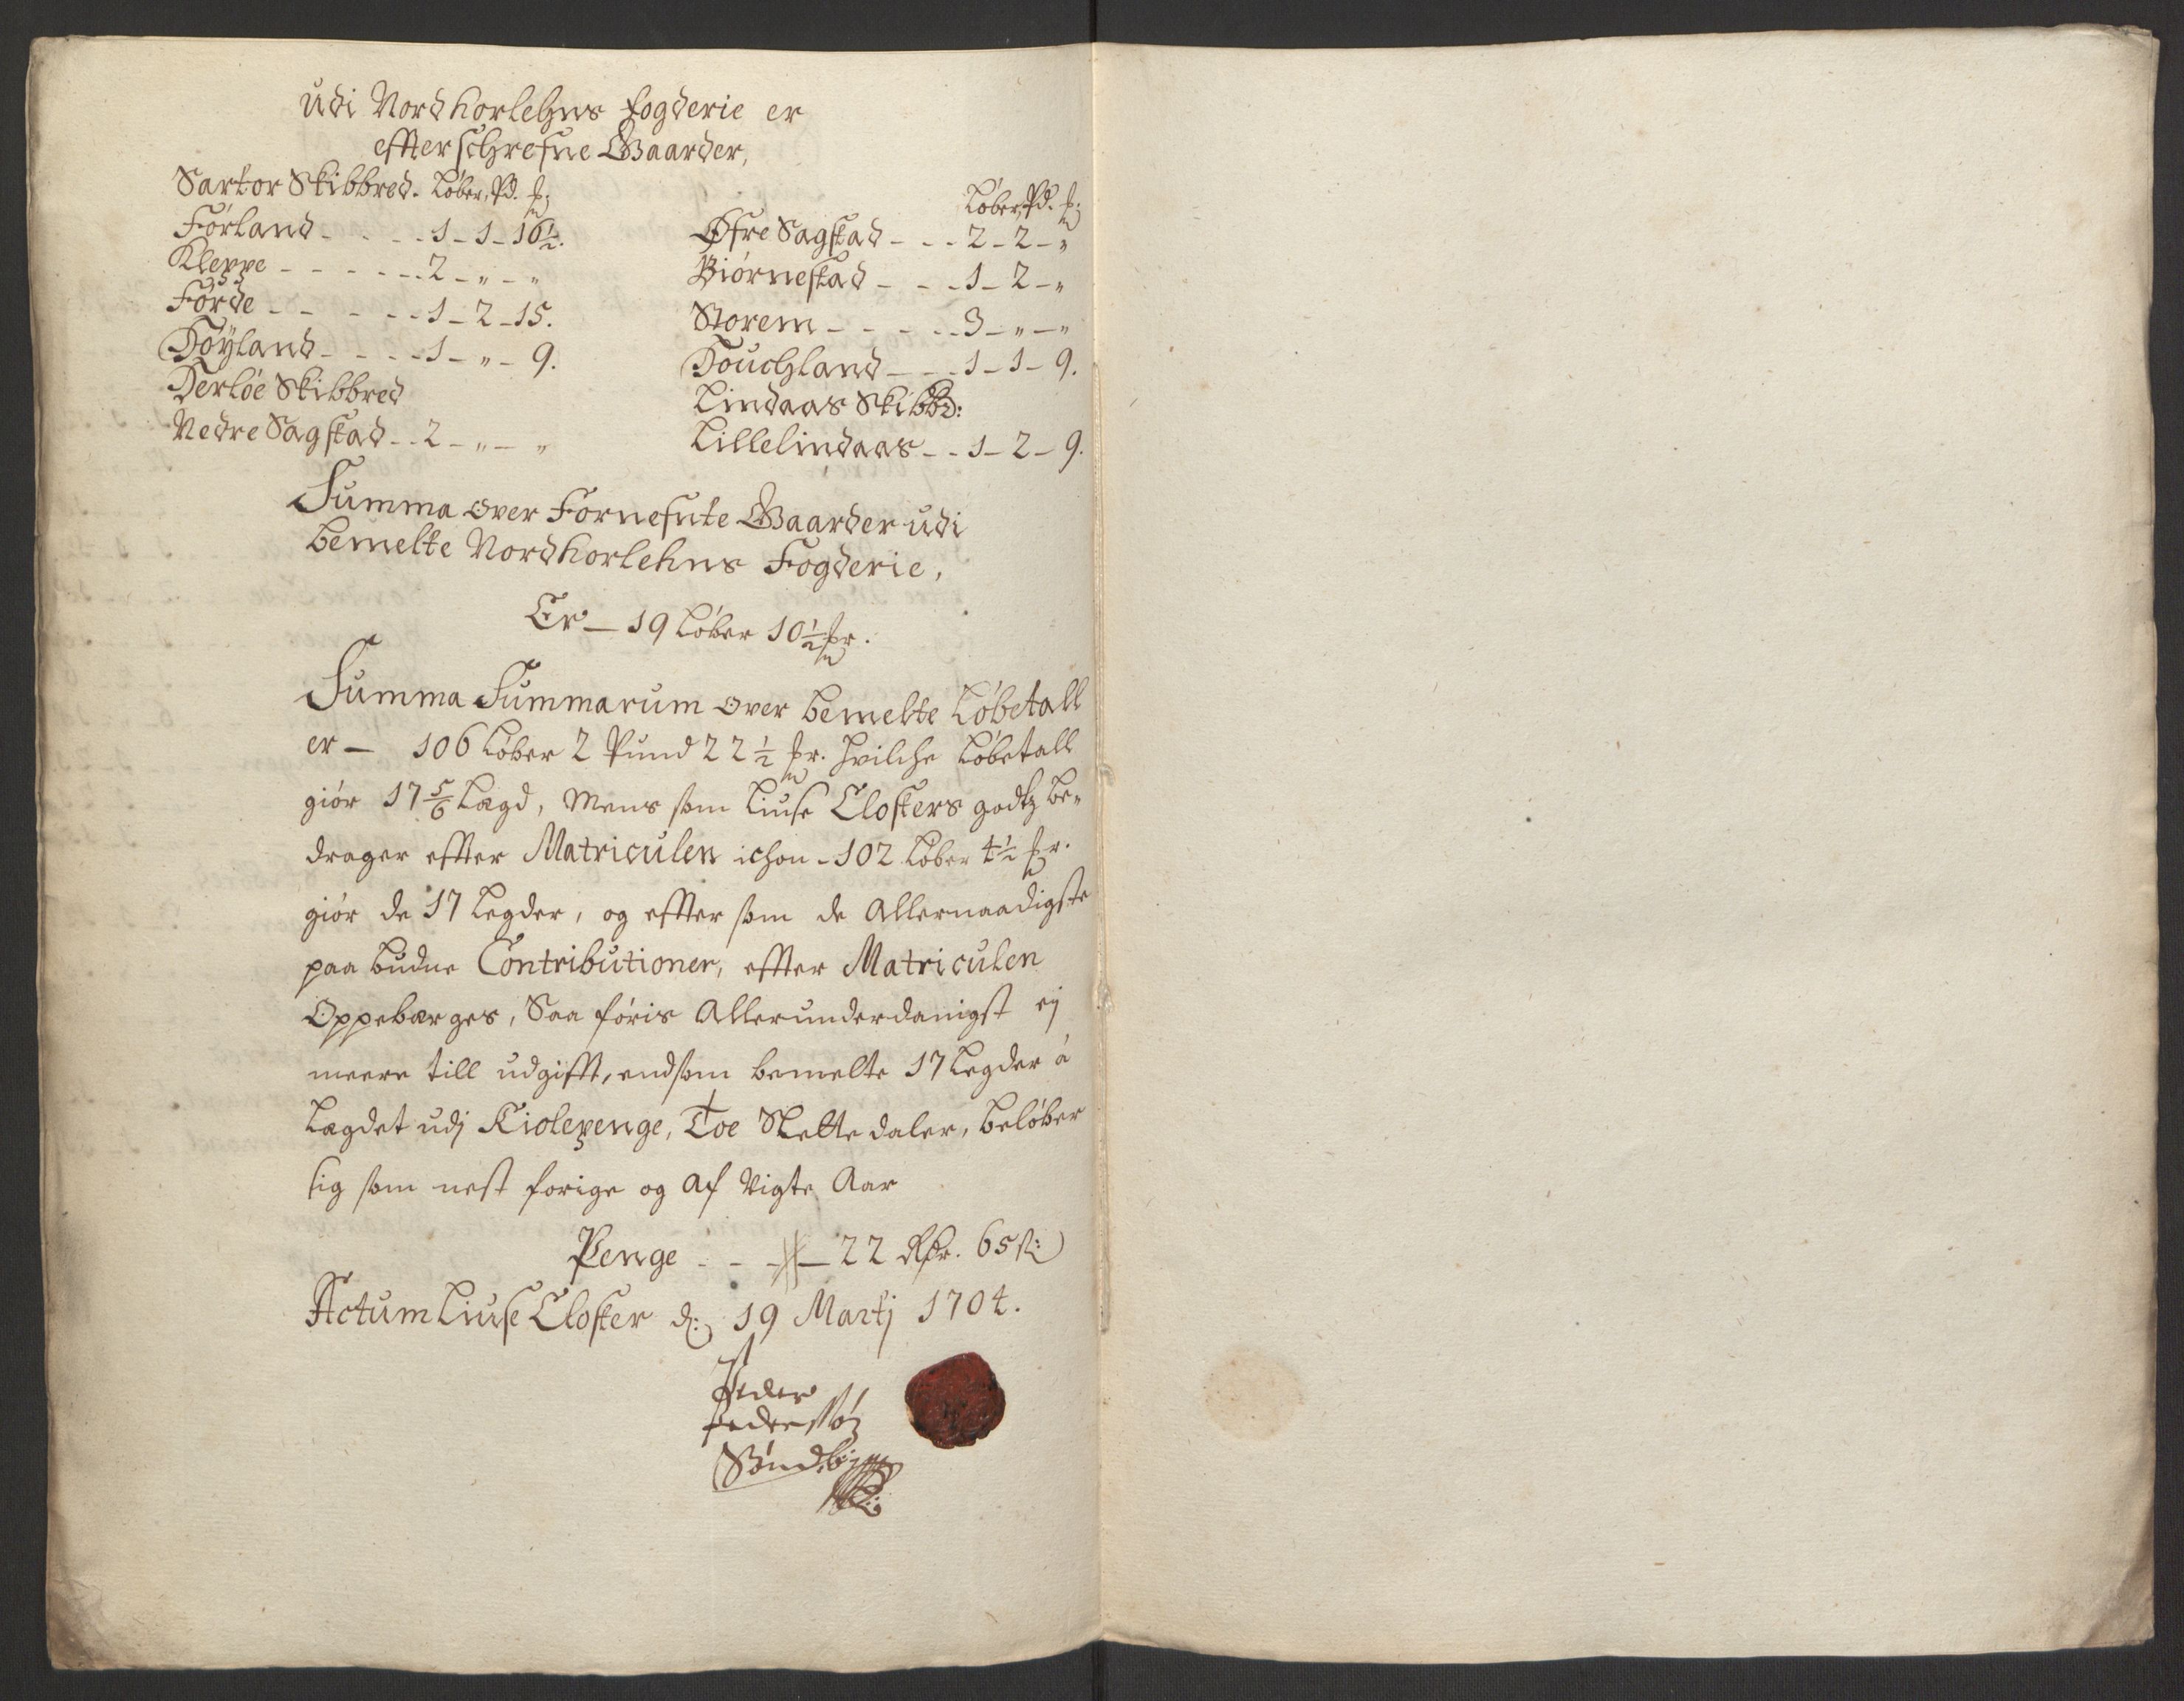 Udi Nordhorlehns fogderie er
effterschrefne Gaarder,
Sartor Skibbred. Løber, Pd. #:
Førland - - - - 1 - 1 - 16½.
Kleppe - - - - - - 2 - „ - „
Førde - - - - - 1 - 2 - 15.
Tøÿland - - - - 1 - „ - 9.
Herløe Skibbred
Nedre Sagstad - - 2 - „ - „
Løber, Pd. #:
Øfre Sagstad - - - 2 - 2 - „
Biørnestad - - - 1 - 2 - „
Storem - - - - - 3 - „ - „
Touchland - - - 1 - 1 - 9.
Lindaas Skibbd:
Lillelindaas - - 1 - 2 - 9.
Summa over Fornefnte Gaarder udi
bemelte Nordhorlehns Fogderie,
Er — 19 Løber 10½ #r.
Summa Summarum over bemelte Løbetall
er — 106 Løber 2 Pund 22½ #r. hvilche Løbetall
giør 17 5/6 Lægd, Mens som Liuse Closters godtz be-
drager effter Matriculen ichon - 102 Løber 4½ #r.
giør de 17 Legder, og effter som de Allernaadigste
paa budne Contributioner, effter Matriculen
Oppebærges, Saa føris Allerunderdanigst ej
meere till udgifft, end som bemelte 17 Legder á
Lægdet udj Kiolepenge, Toe Slette daler, beløber
sig som nest forige og af vigte Aar
Penge - - - # — 22 Rdr. 65 s:
Actum Liuse Closter d: 19 Martj 1704.
Peder
Pederssøn